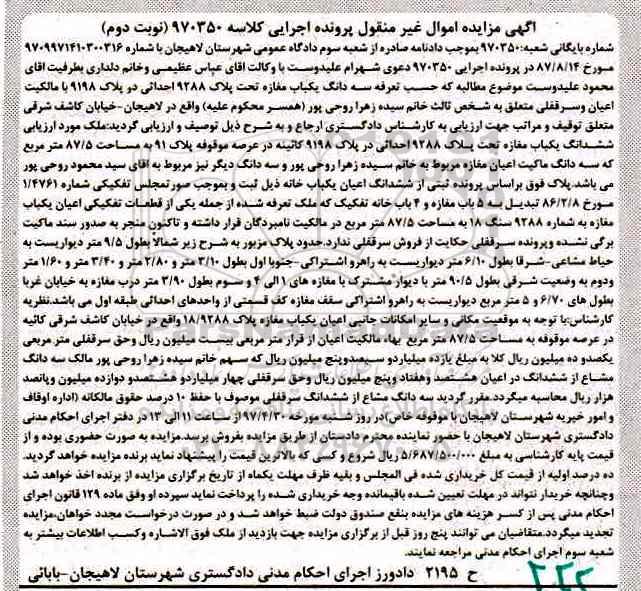 آگهی مزایده اموال غیر منقول پرونده اجرایی کلاسه ۹۷۰۳۵۰ (نوبت دوم)
شماره بایگانی شعبه:۹۷۰۳۵۰ بموجب دادنامه صادره از شعبه سوم دادگاه عمومی شهرستان لاهیجان با شماره ۹۷۰۹۹۷۱۴۱۰۳۰۰۳۱۶
مورخ ۸۷/۸/۱۴ در پرونده اجرایی ۹۷۰۳۵۰ دعوی شهرام علیدوست با وکالت اقای عباس عظیمی وخانم دلداری بطرفیت اقای
محمود علیدوست موضوع مطالبه که حسب تعرفه سه دانگ یکباب مغازه تحت پلاک ۹۲۸۸ احداثی در پلاک ۹۱۹۸ با مالکیت
اعیان وسرقفلی متعلق به شخص ثالث خانم سیده زهرا روحی پور (همسر محکوم علیه) واقع در لاهیجان-خیابان کاشف شرقی
متعلق توقیف و مراتب جهت ارزیابی به کارشناس دادگستری ارجاع و به شرح ذیل توصیف و ارزیابی گردید:ملک مورد ارزیابی
ششدانگ یکباب مغازه تحت پلاک ۹۲۸۸ احداثی در پلاک ۹۱۹۸ کائینه در عرصه موقوفه پلاک ۹۱ به مساحت ۸۷/۵ متر مربع
که سه دانگ ماکیت اعیان مغازه مربوط به خانم سیده زهرا روحی پور و سه دانگ دیگر نیز مربوط به اقای سید محمود روحی پور
می باشد.پلاک فوق براساس پرونده ثبتی از ششدانگ اعیان یکباب خانه ذیل ثبت و بموجب صورتمجلس تفکیکی شماره ۱/۴۷۶۱
مورخ ۸۶/۲/۸ تبدیل به ۵ باب مغازه و ۴ باب خانه تفکیک که ملک تعرفه شده از جمله یکی از قطعات تفکیکی اعیان یکباب
مغازه به شماره ۹۲۸۸ سنگ ۱۸ به مساحت ۸۷/۵ متر مربع در مالکیت نامبردگان قرار داشته و تاکنون منجر به صدور سند ماکیت
برگی نشده وپرونده سرقفلی حکایت از فروش سرقفلی ندارد.حدود پلاک مزبور به شرح زیر شمالا بطول ۹/۵ متر دیواریست به
حیاط مشاعی-شرقا بطول ۶/۱۰ متر دیواریست به راهرو اشتراکی-جنوبا اول بطول ۳/۱۰ متر و ۲/۸۰ متر و ۳/۴۰ متر و ۱/۶۰ متر
ودوم به وضعیت شرقی بطول ۹۰/۵ متر با دیوار مشترک با مغازه های ۱ الی ۴ و سوم بطول ۳/۹۰ متر درب مغازه به خیابان غربا
بطول های ۶/۷۰ و ۵ متر مربع دیواریست به راهرو اشتراکی سقف مغازه کف قسمتی از واحدهای احداثی طبقه اول می باشد.نظریه
کارشناس:با توجه به موقعیت مکانی و سایر امکانات جانبی اعیان یکباب مغازه پلاک ۱۸/۹۲۸۸ واقع در خیابان کاشف شرقی کائیه
در عرصه موقوفه به مساحت ۸۷/۵ متر مربع بهاء مالکیت اعیان از قراز متر مربعی بیست میلیون ریال وحق سرقفلی متر مربعی
یکصدو ده میلیون ریال کلا به مبلغ یازده میلیاردو سیصدوپنج میلیون ریال که سهم خانم سیده زهرا روحی پور مالک سه دانگ
مشاع از ششدانگ در اعیان هشتصد وهفتاد وپنج میلیون ریال وحق سرقفلی چهار میلیاردو هشتصدو دوازده میلیون وپانصد
هزار ریال محاسبه میگردد.مقرر گردید سه دانگ مشاع از ششدانگ سرقفلی موصوف با حفظ ۱۰ درصد حقوق مالکانه (اداره اوقاف
و امور خیریه شهرستان لاهیجان با موقوفه خاص)در روز شنبه مورخه ۹۷/۴/۳۰ از ساعت ۱۱ الی ۱۳ در دفتر اجرای احکام مدنی
دادگستری شهرستان لاهیجان با حضور نماینده محترم دادستان از طریق مزایده بفروش برسد.مزایده به صورت حضوری بوده و از
قیمت پایه کارشناسی به مبلغ ۵/۶۸۷/۵۰۰/۰۰۰ ریال شروع و کسی که بالاترین قیمت را پیشنهاد نماید برنده مزایده خواهد گردید.
ده درصد اولیه از قیمت کل خریداری شده فی المجلس و بقیه ظرف مهلت یکماه از تاریخ برگزاری مزایده از برنده اخذ خواهد شد
وچنانچه خریدار نتواند در مهلت تعیین شده باقیمانده وجه خریداری شده را پرداخت نماید سپرده او وفق ماده ۱۲۹ قانون اجرای
احکام مدنی پس از کسر هزینه های مزایده بنفع صندوق دولت ضبط خواهد شد و در صورت درخواست مجدد خواهان،مزایده
تجدید میگردد.متقاضیان می توانند پنج روز قبل از برگزاری مزایده جهت بازدید از ملک فوق الاشاره وکسب اطلاعات بیشتر به
شعبه سوم اجرای احکام مدنی مراجعه نمایند.
ح ۲۱۹۵ دادورز اجرای احکام مدنی دادگستری شهرستان لاهیجان-بابائی